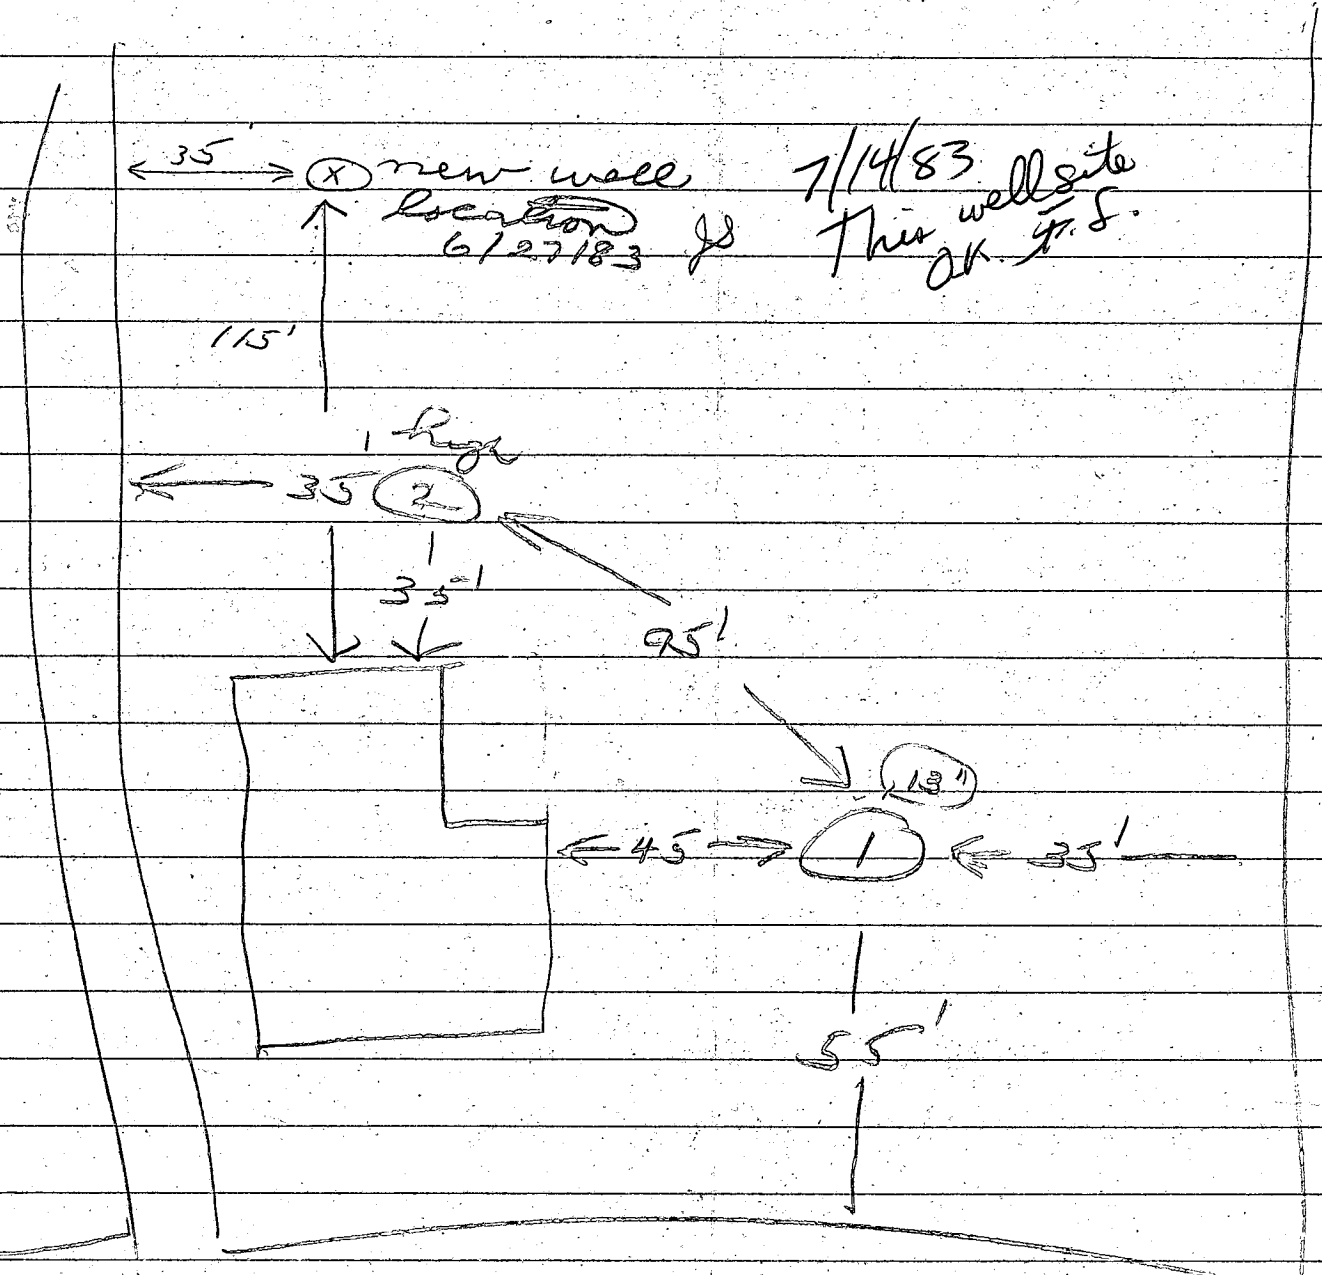 35'
X new well
location
6/27/83 JS
7/14/83
This well site
OK. F.S.
115'
high
35' 2
35'
95'
13"
45 1 35'
55'